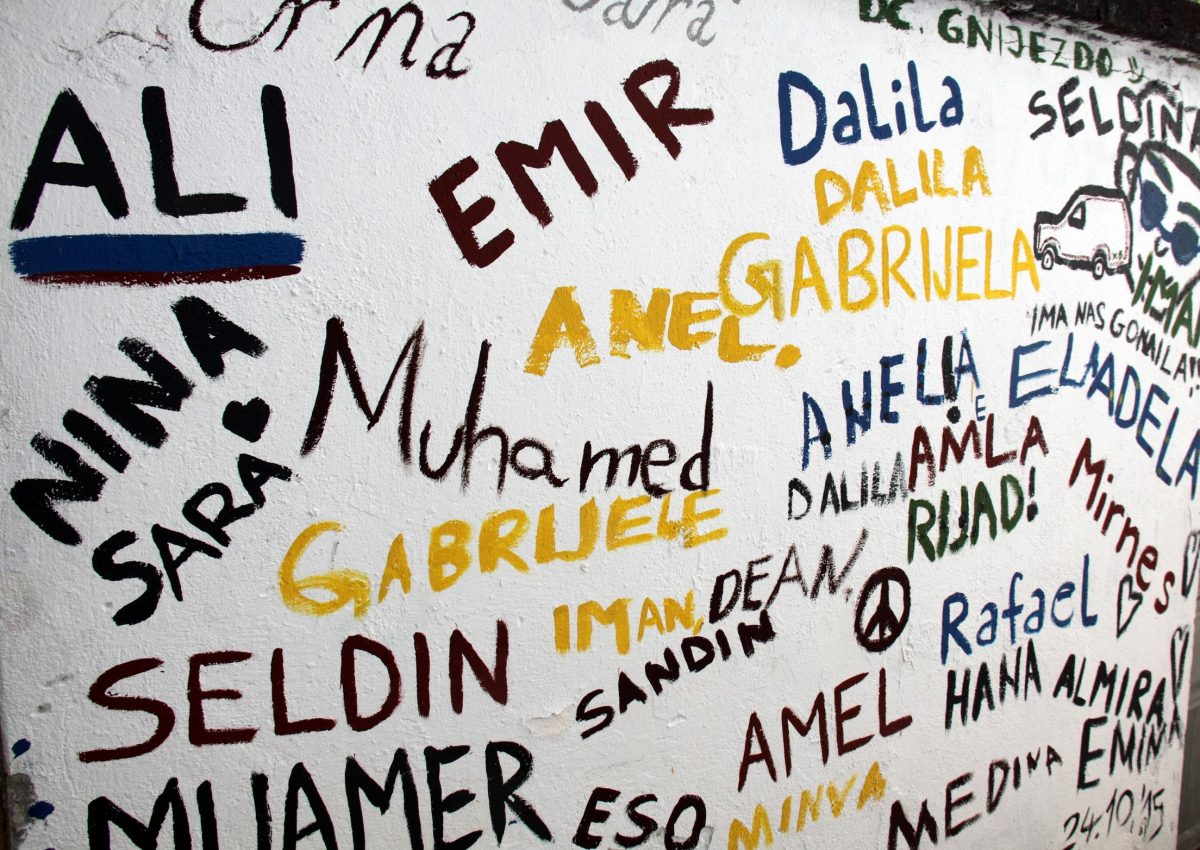 Orma
Sara
DC. GNIJEZDO
ALI
EMIR
Dalila
SELDIN
DALILA
GABRIJELA
ANEL.
NINA
SARA
Muhamed
IMA NAS GOMILA!!!
ANELA
ELMADELA
E
AMLA
DALILA
RIJAD!
Mirnes
GABRIJELE
IMAN,
DEAN.
SANDIN
Rafael
SELDIN
HANA
ALMIRA
AMEL
EMINA
MUAMER
ESO
MINVA
MEDINA
24.10.'15